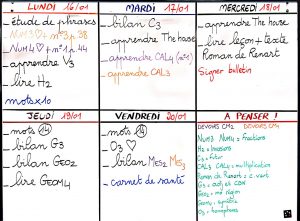 LUNDI 16/01
_ étude de phrases
_ Num3 ♡ + n°3 p.38
_ Num4 ♡ + n°1 p.44
_ apprendre V3
_ lire H2
mots x 10
MARDI 17/01
_ bilan C3
_ apprendre The house
_ apprendre CAL4 (n°1)
_ apprendre CAL3
MERCREDI 18/01
_ apprendre The house
_ lire leçon + texte
Roman de Renart
Signer bulletin
JEUDI 19/01
_ mots 14
_ bilan G3
_ bilan Geo2
_ lire Geom4
VENDREDI 20/01
_ mots 14
_ O3 ♡
_ bilan Mes2 Mes3
_ carnet de santé
A PENSER !
DEVOIRS CM2 DEVOIRS CM1
Num3 Num4 = fractions
H2 = Invasions
C3 = futur
CAL3 CAL4 = multiplication
Roman de Renart = c. vert
G3 = adj et CDN
Geo2 = ma région
Geom4 = symétrie
O3 = homophones